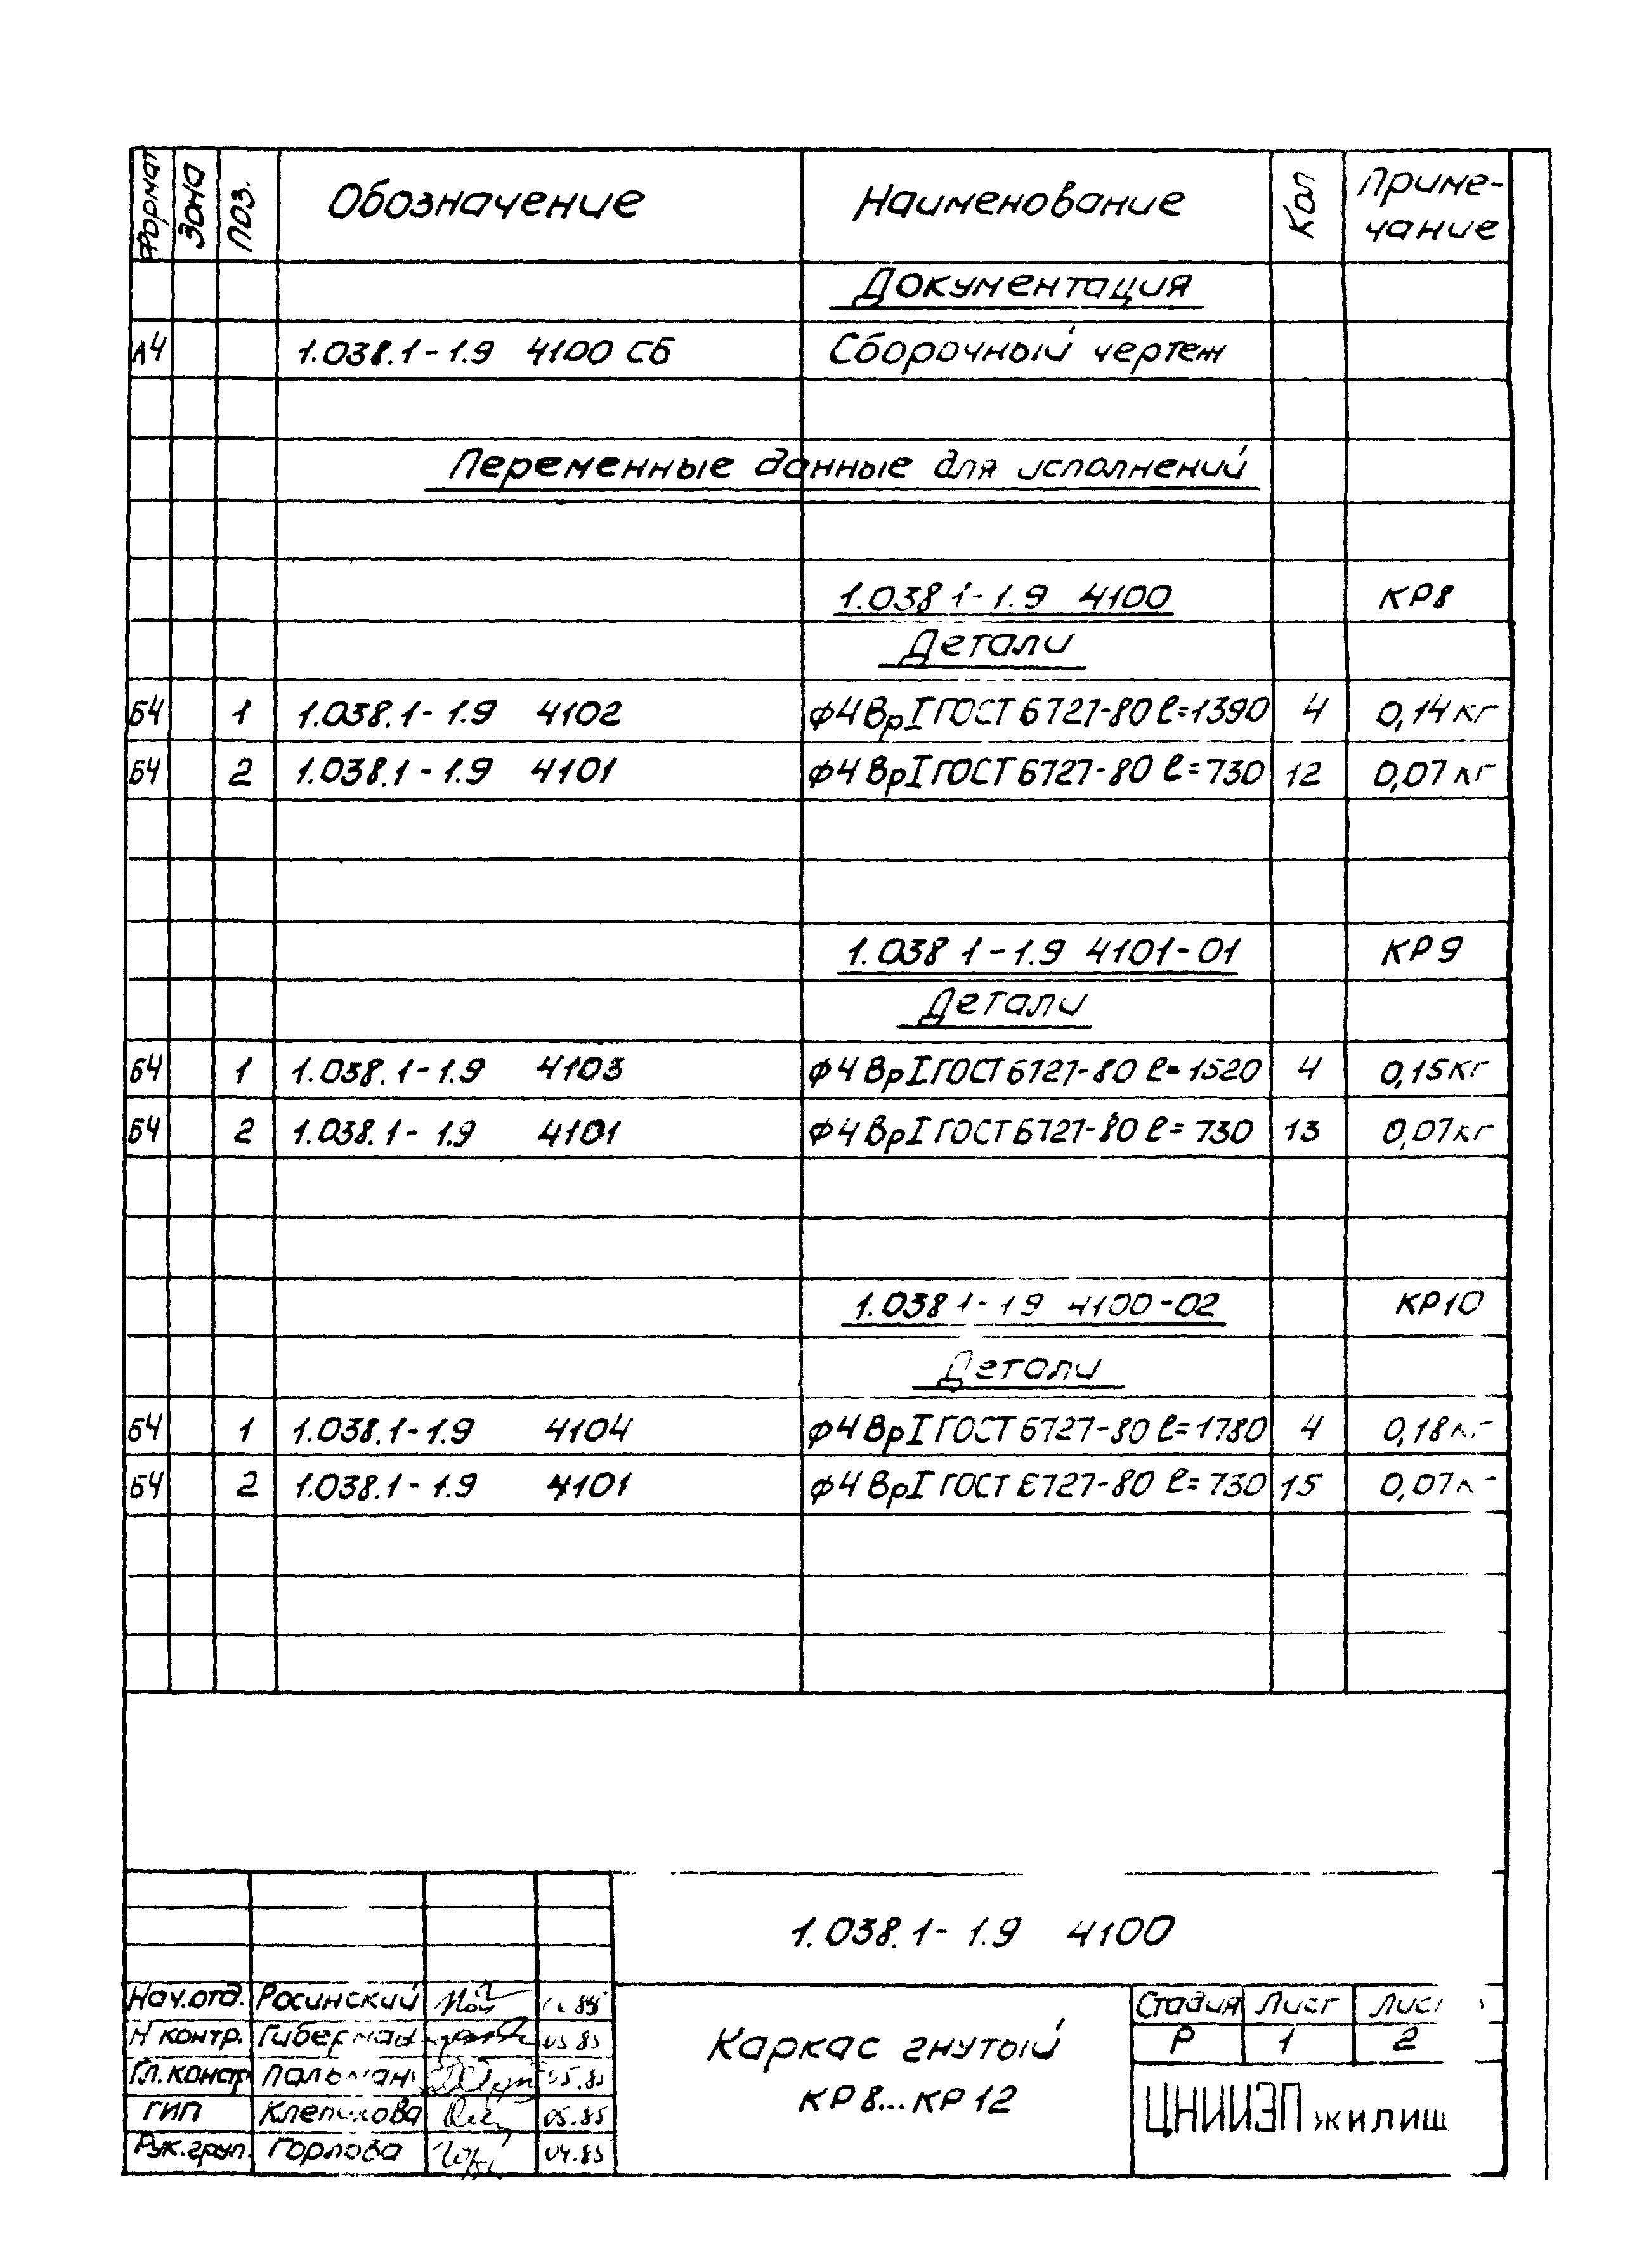 Формат Зона Поз. Обозначение Наименование Кол Приме-
чание
Документация
А4 1.038.1-1.9 4100 СБ Сборочный чертеж
Переменные данные для исполнений
1.038 1-1.9 4100 КР8
Детали
Б4 1 1.038.1-1.9 4102 ф4ВрI ГОСТ 6727-80 ℓ=1390 4 0,14кг
Б4 2 1.038.1-1.9 4101 ф4ВрI ГОСТ 6727-80 ℓ=730 12 0,07кг
1.038 1-1.9 4101-01 КР9
Детали
Б4 1 1.038.1-1.9 4103 ф4ВрI ГОСТ 6727-80 ℓ=1520 4 0,15кг
Б4 2 1.038.1-1.9 4101 ф4ВрI ГОСТ 6727-80 ℓ=730 13 0,07кг
1.038 1-1 9 4100-02 КР10
Детали
Б4 1 1.038.1-1.9 4104 ф4ВрI ГОСТ 6727-80 ℓ=1780 4 0,18кг
Б4 2 1.038.1-1.9 4101 ф4ВрI ГОСТ 6727-80 ℓ=730 15 0,07кг
1.038.1-1.9 4100
Нач.отд. Росинский
Н контр. Гиберман 05.85
Гл.констр Пальман 05.85
ГИП Клепикова 05.85
Рук.груп. Горлова 04.85
Каркас гнутый
КР8...КР12
Стадия Лист
Р 1 2
ЦНИИЭП жилищ